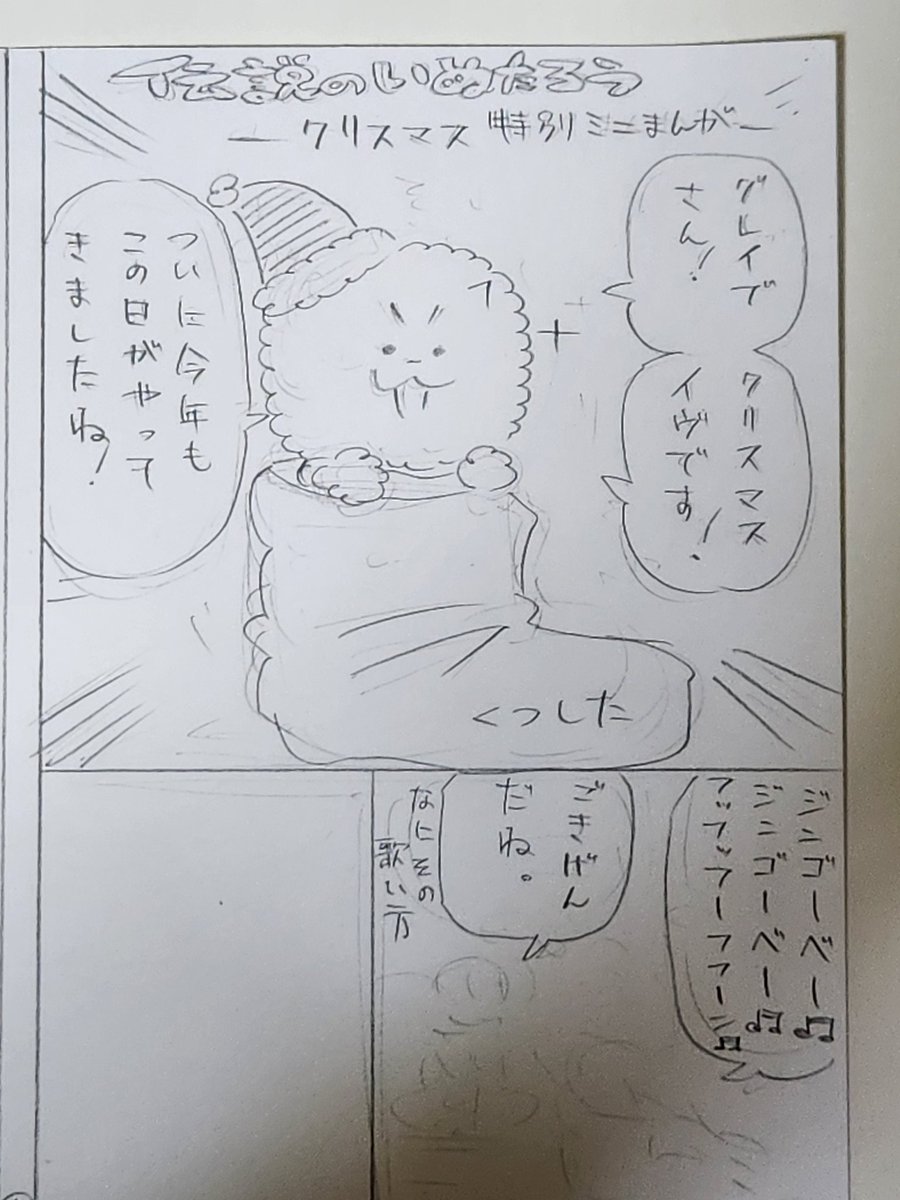 伝説のいぬたろう
ークリスマス特別ミニまんがー
グレイで
さん!
クリスマス
イヴです!
ついに今年も
この日がやって
きましたね!
くつした
ジンゴーベー♫
ジンゴーベー♫
フッフッフーフフー♫
ごきげん
だね。
なにその
歌い方